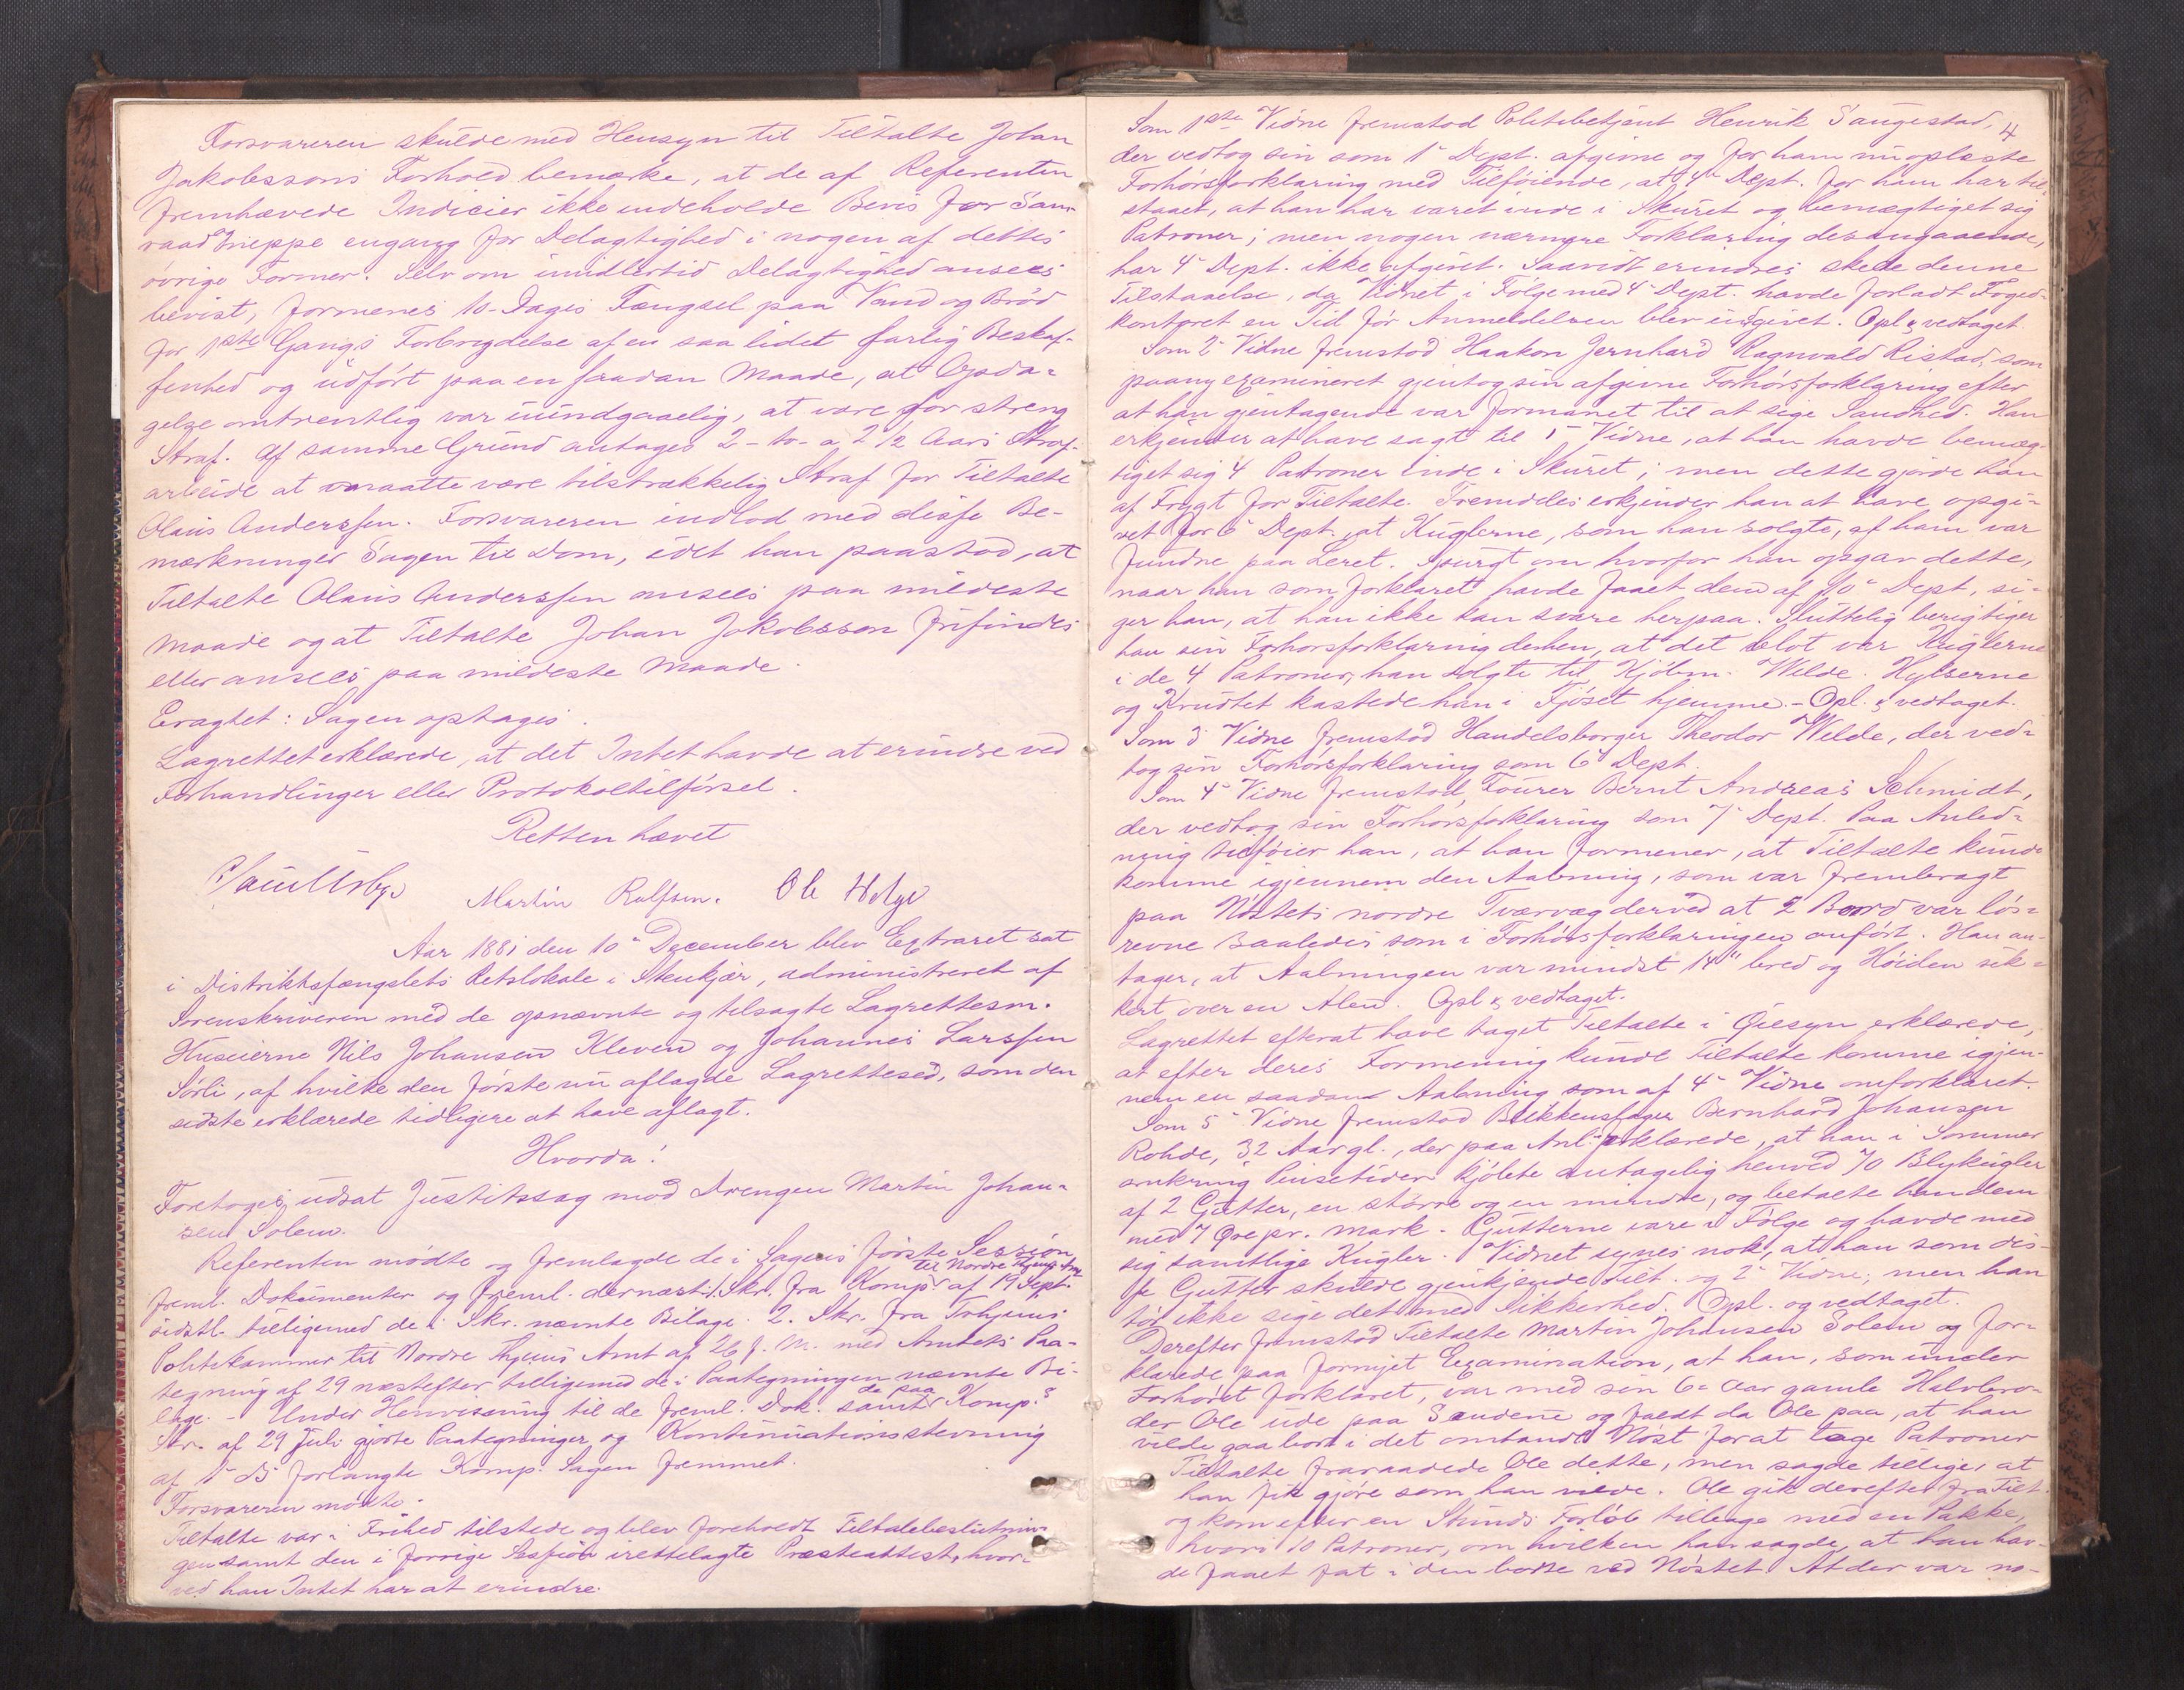 Forsvareren skulde med Hensyn til Tiltalte Johan
Jakobssons Forhold bemærke, at de af Referenten
fremhævede Indicier ikke indeholde Bevis for Sam-
raad neppe engang for Delagtighed i nogen af dettes
øvrige Former. Selv om imidlertid Delagtighed ansees
bevist, formenes 10-Dages Fængsel paa Vand og Brød
for 1ste Gangs Forbrydelse af en saa lidet farlig Beskaf-
fenhed og udført paa en saadan Maade, at Opda-
gelse omtrentlig var uundgaaelig, at være for streng
Straf. Af samme Grund antages 2-to- a 2 1/2 Aars Straf-
arbeide at maatte være tilstrækkelig Straf for Tiltalte
Olaus Anderssen. Forsvareren indlod med disse Be-
mærkninger Sagen til Dom, idet han paastod, at
Tiltalte Olaus Anderssen ansees paa mildeste
Maade og at Tiltalte Johan Jakobsson frifindes
eller ansees paa mildeste Maade.
Eragtet: Sagen optages.
Lagrettet erklærede, at det Intet havde at erindre ved
Forhandlinger eller Protokoltilførsel.
Retten hævet
Martin Rolfsen. Ole Helge
Aar 1881 den 10de December blev Extraret sat
i Distriktsfængslets Retslokale i Stenkjær, administreret af
Sorenskriveren med de opnævnte og tilsagte Lagrettesm.
Huseierne Nils Johansen Kleven og Johannes Larssen
Sørli, af hvilke den første nu aflagde Lagrettesed, som den
sidste erklærede tidligere at have aflagt.
Hvorda!
Foretoges udsat Justitssag mod Drengen Martin Johan-
sen Solem.
Referenten mødte og fremlagde de i Sagens første Session
til Nordre Thjems Amt
freml. Dokumenter og freml. dernæst: 1. Skr. fra Komp. af 19 Septr.
sidstl. tilligemed de i Skr. nævnte Bilage. 2. Skr. fra Trhjems
Politikammer til Nordre Thjems Amt af 26 f. M. med Amtets Paa-
tegning af 29 næstefter tilligemed de i Paategningen nævnte Bi-
lage. - Under Henvisning til de freml. Dok. samt de paa Komp.s
Skr. af 29 Juli gjorte Paategninger og Kontinuationsstevning
af 1 ds forlangte Komp. Sagen fremmet.
Forsvareren mødte.
Tiltalte var i Frihed tilstede og blev foreholdt Tiltalebeslutnin-
gen samt den i forrige Session irettelagte Præsteattest, hvor-
ved han Intet har at erindre.
4
Som 1ste Vidne fremstod Politibetjent Henrik Saugestad,
der vedtog sin som 1 Dept. afgivne og for ham nu oplæste
Forhørsforklaring med Tilføiende, at 4de Dept. for ham har til-
staaet, at han har været inde i Skuret og bemægtiget sig
Patroner; men nogen nærmere Forklaring desangaaende,
har 4 Dept. ikke afgivet. Saavidt erindres skede denne
Tilstaaelse, da Vidnet i Følge med 4 Dept. havde forladt Foged-
kontoret en Tid før Anmeldelsen blev indgivet. Opl. & vedtaget.
Som 2 Vidne fremstod Haakon Jernhard Ragnvald Ristad, som
paany examineret gjentog sin afgivne Forhørsforklaring efter
at han gjentagende var formanet til at sige Sandhed. Han
erkjender at have sagt til 1 Vidne, at han havde bemæg-
tiget sig 4 Patroner inde i Skuret; men dette gjorde han
af Frygt for Tiltalte. Fremdeles erkjender han at have opgi-
vet for 6 Dept. at Kuglerne, som han solgte, af ham var
fundne paa Leret. Spurgt om hvorfor han opgav dette,
naar han som forklaret havde faaet dem af 10 Dept, si-
ger han, at han ikke kan svare herpaa. Sluttelig berigtiger
han sin Forhørsforklaring derhen, at det blot var Kuglerne
i de 4 Patroner, han solgte til Kjøbm. Wilde. Hylserne
og Krudtet kastede han i Fjøset hjemme. - Opl. & vedtaget.
Som 3 Vidne fremstod Handelsborger Theodor Wilde, der ved-
tog sin Forhørsforklaring som 6 Dept.
Som 4 Vidne fremstod Fourer Bernt Andreas Schmidt,
der vedtog sin Forhørsforklaring som 7 Dept. Paa Anled-
ning tilføier han, at han formener, at Tiltalte kunde
komme igjennem den Aabning, som var frembragt
paa Nøstets nordre Tværvæg derved at 2 Bord var løs-
revne saaledes som i Forhørsforklaringen anført. Han an-
tager, at Aabningen var mindst 14" bred og Høiden sik-
kert over en Alen. Opl & vedtaget.
Lagrettet efterat have taget Tiltalte i Øiesyn erklærede,
at efter deres Formening kunde Tiltalte komme igjen-
nem en saadan Aabning som af 4 Vidne omforklaret.
Som 5 Vidne fremstod Blikkenslager Bernhard Johansen
Rohde, 32 Aar gl., der paa Anl. erklærede, at han i Sommer
omkring Pinsetider kjøbte antagelig henved 70 Blykugler
af 2 Gutter, en større og en mindre, og betalte han dem
med 7 Øre pr. Mark. Gutterne vare i Følge og havde med
sig samtlige Kugler. Vidnet synes nok, at han som dis-
se Gutter skulde gjenkjende Tilt. og 2 Vidne; men han
tør ikke sige det med Sikkerhed. Opl. og vedtaget.
Derefter fremstod Tiltalte Martin Johansen Solem og for-
klarede paa fornyet Examination, at han, som under
Forhøret forklaret, var med sin 6-Aar gamle Halvbro-
der Ole ude paa Sandene og faldt da Ole paa, at han
vilde gaa bort i det omhandl. Nøst forat tage Patroner
Tiltalte fraraadede Ole dette, men sagde tillige, at
han fik gjøre som han vilde. Ole gik derefter fra Tilt.
og kom efter en Stunds Forløb tilbage med en Pakke,
hvori 10 Patroner, om hvilken han sagde, at han hav-
de faaet fat i den borte ved Nøstet. At der var no-